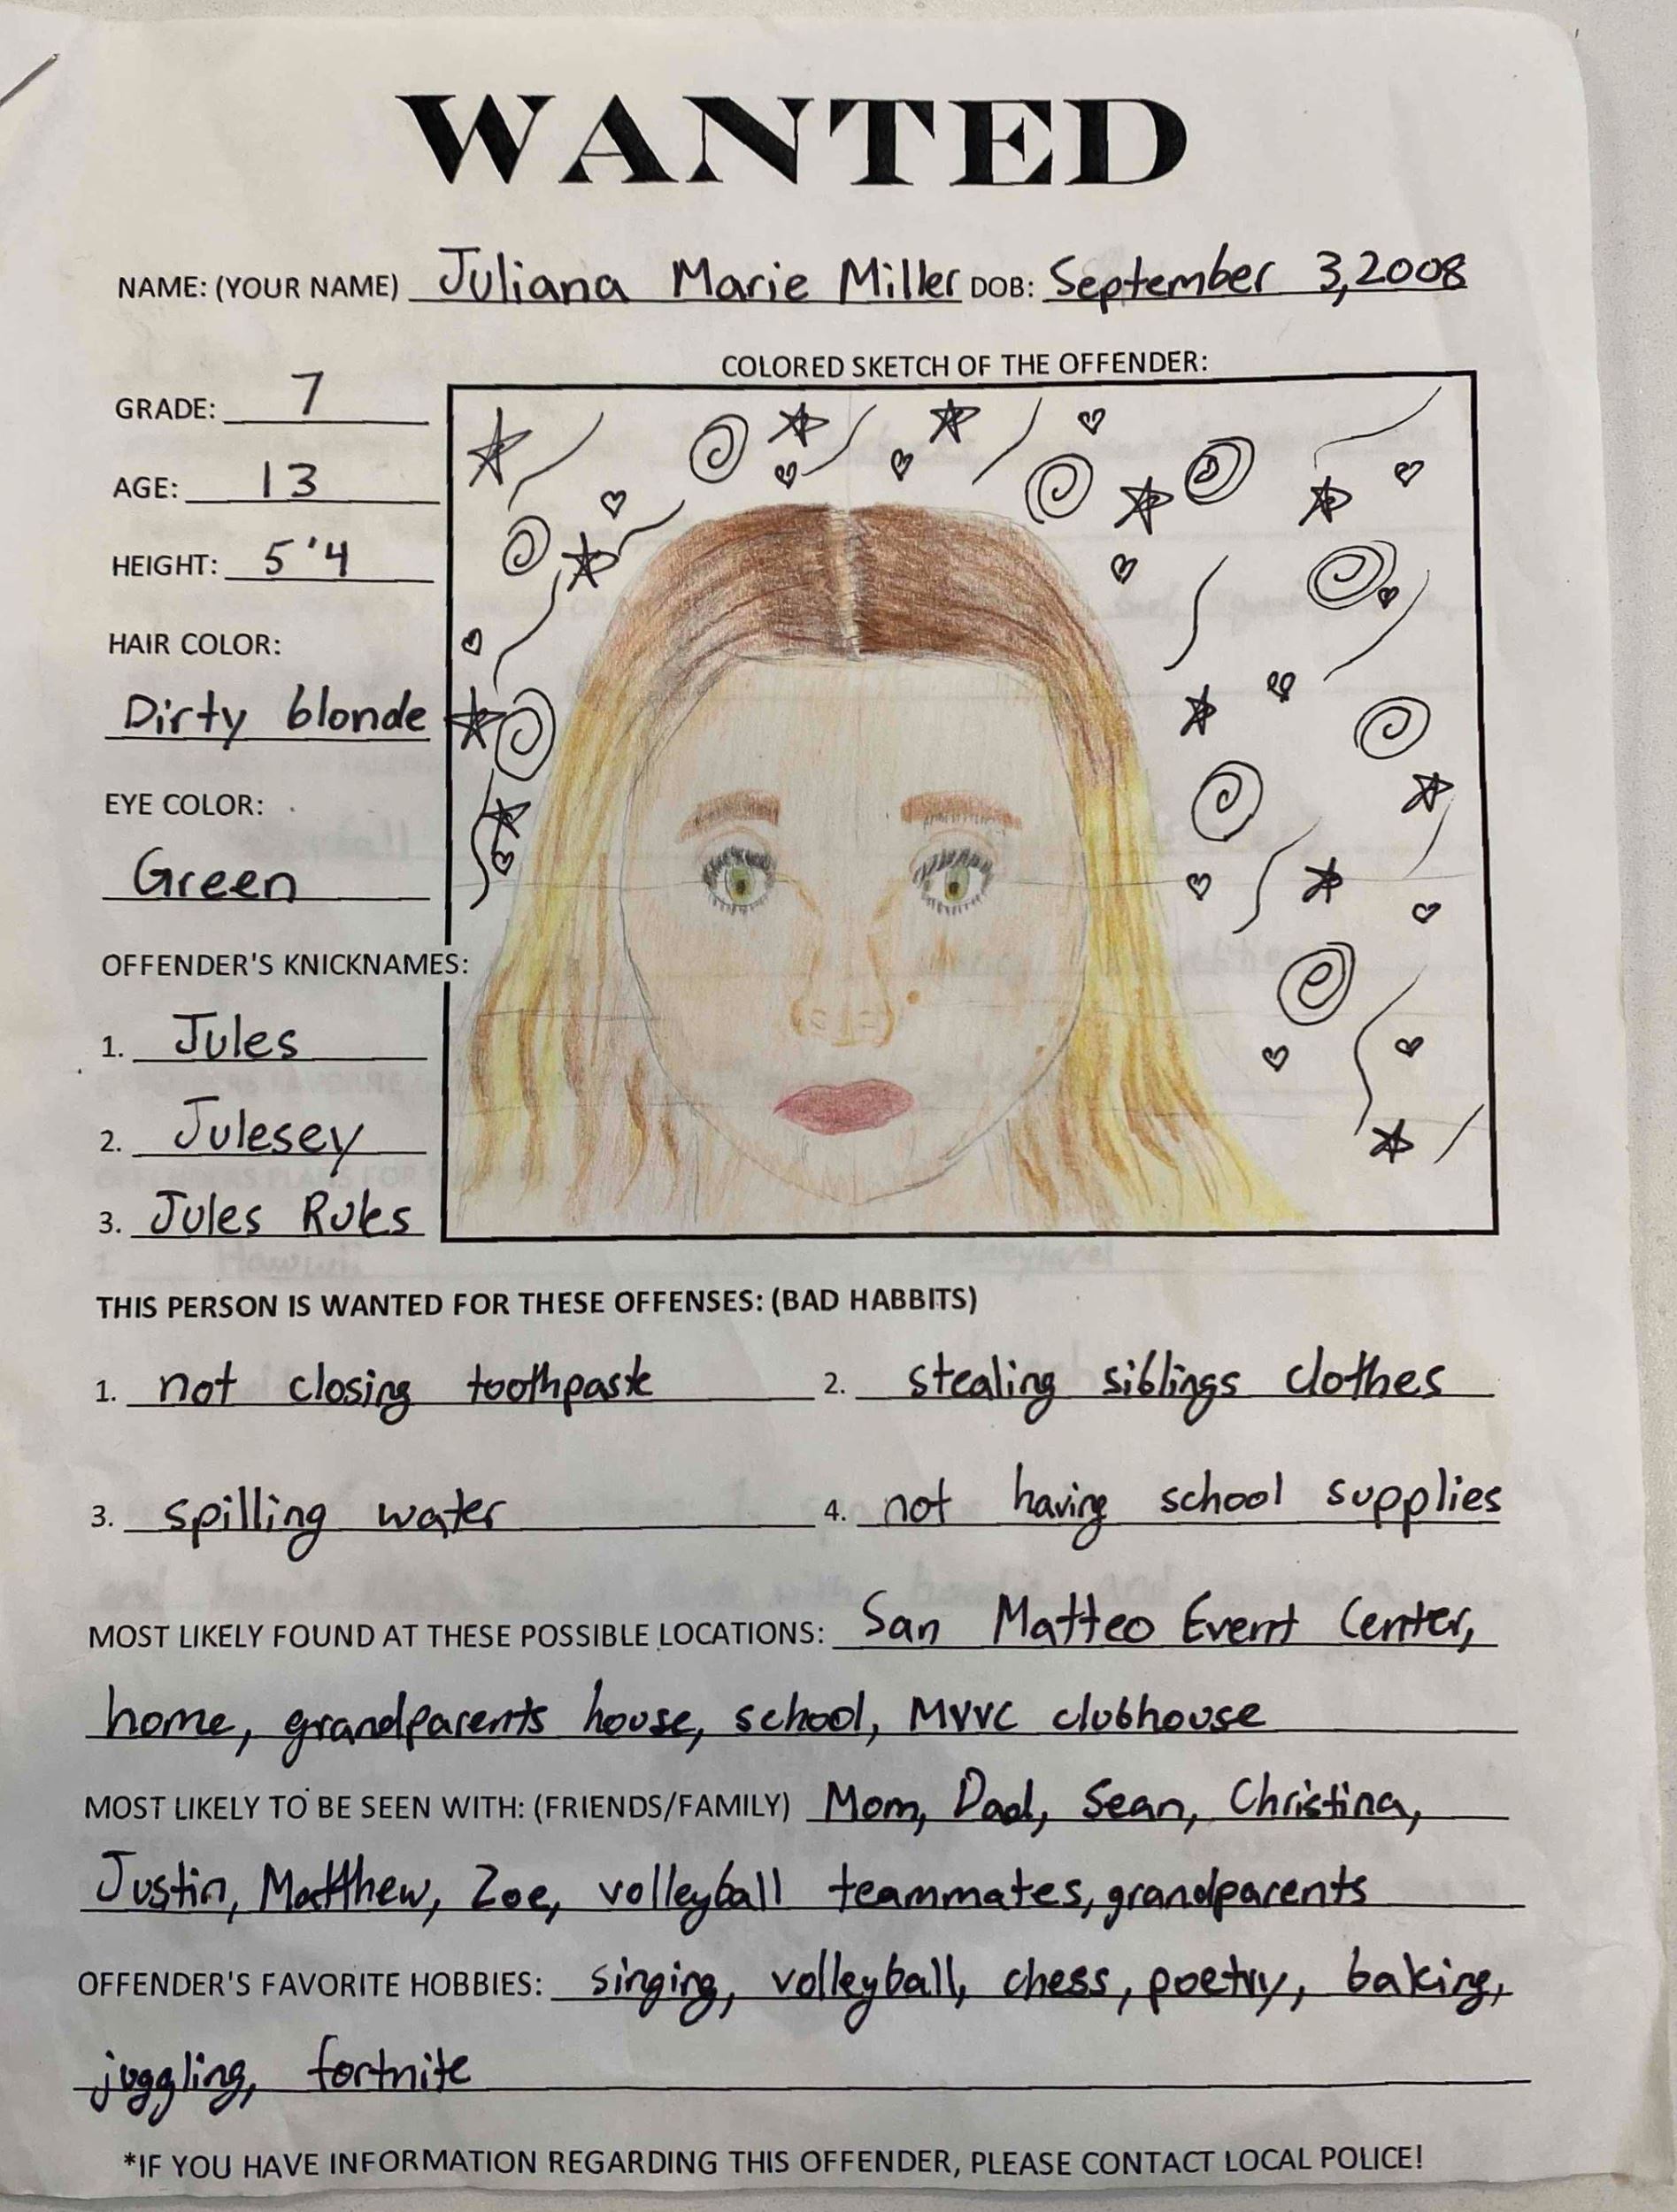 WANTED
NAME: (YOUR NAME) Juliana Marie Miller DOB: September 3, 2008
COLORED SKETCH OF THE OFFENDER:
GRADE: 7
AGE: 13
HEIGHT: 5'4
HAIR COLOR:
Dirty blonde
EYE COLOR:
Green
OFFENDER'S KNICKNAMES:
1. Jules
2. Julesey
3. Jules Rules
THIS PERSON IS WANTED FOR THESE OFFENSES: (BAD HABBITS)
1. not closing toothpaste 2. stealing siblings clothes
3. spilling water 4. not having school supplies
MOST LIKELY FOUND AT THESE POSSIBLE LOCATIONS: San Matteo Event Center,
home, grandparents house, school, MVVC clubhouse
MOST LIKELY TO BE SEEN WITH: (FRIENDS/FAMILY) Mom, Dad, Sean, Christina,
Justin, Matthew, Zoe, volleyball teammates, grandparents
OFFENDER'S FAVORITE HOBBIES: singing, volleyball, chess, poetry, baking,
juggling, fortnite
*IF YOU HAVE INFORMATION REGARDING THIS OFFENDER, PLEASE CONTACT LOCAL POLICE!